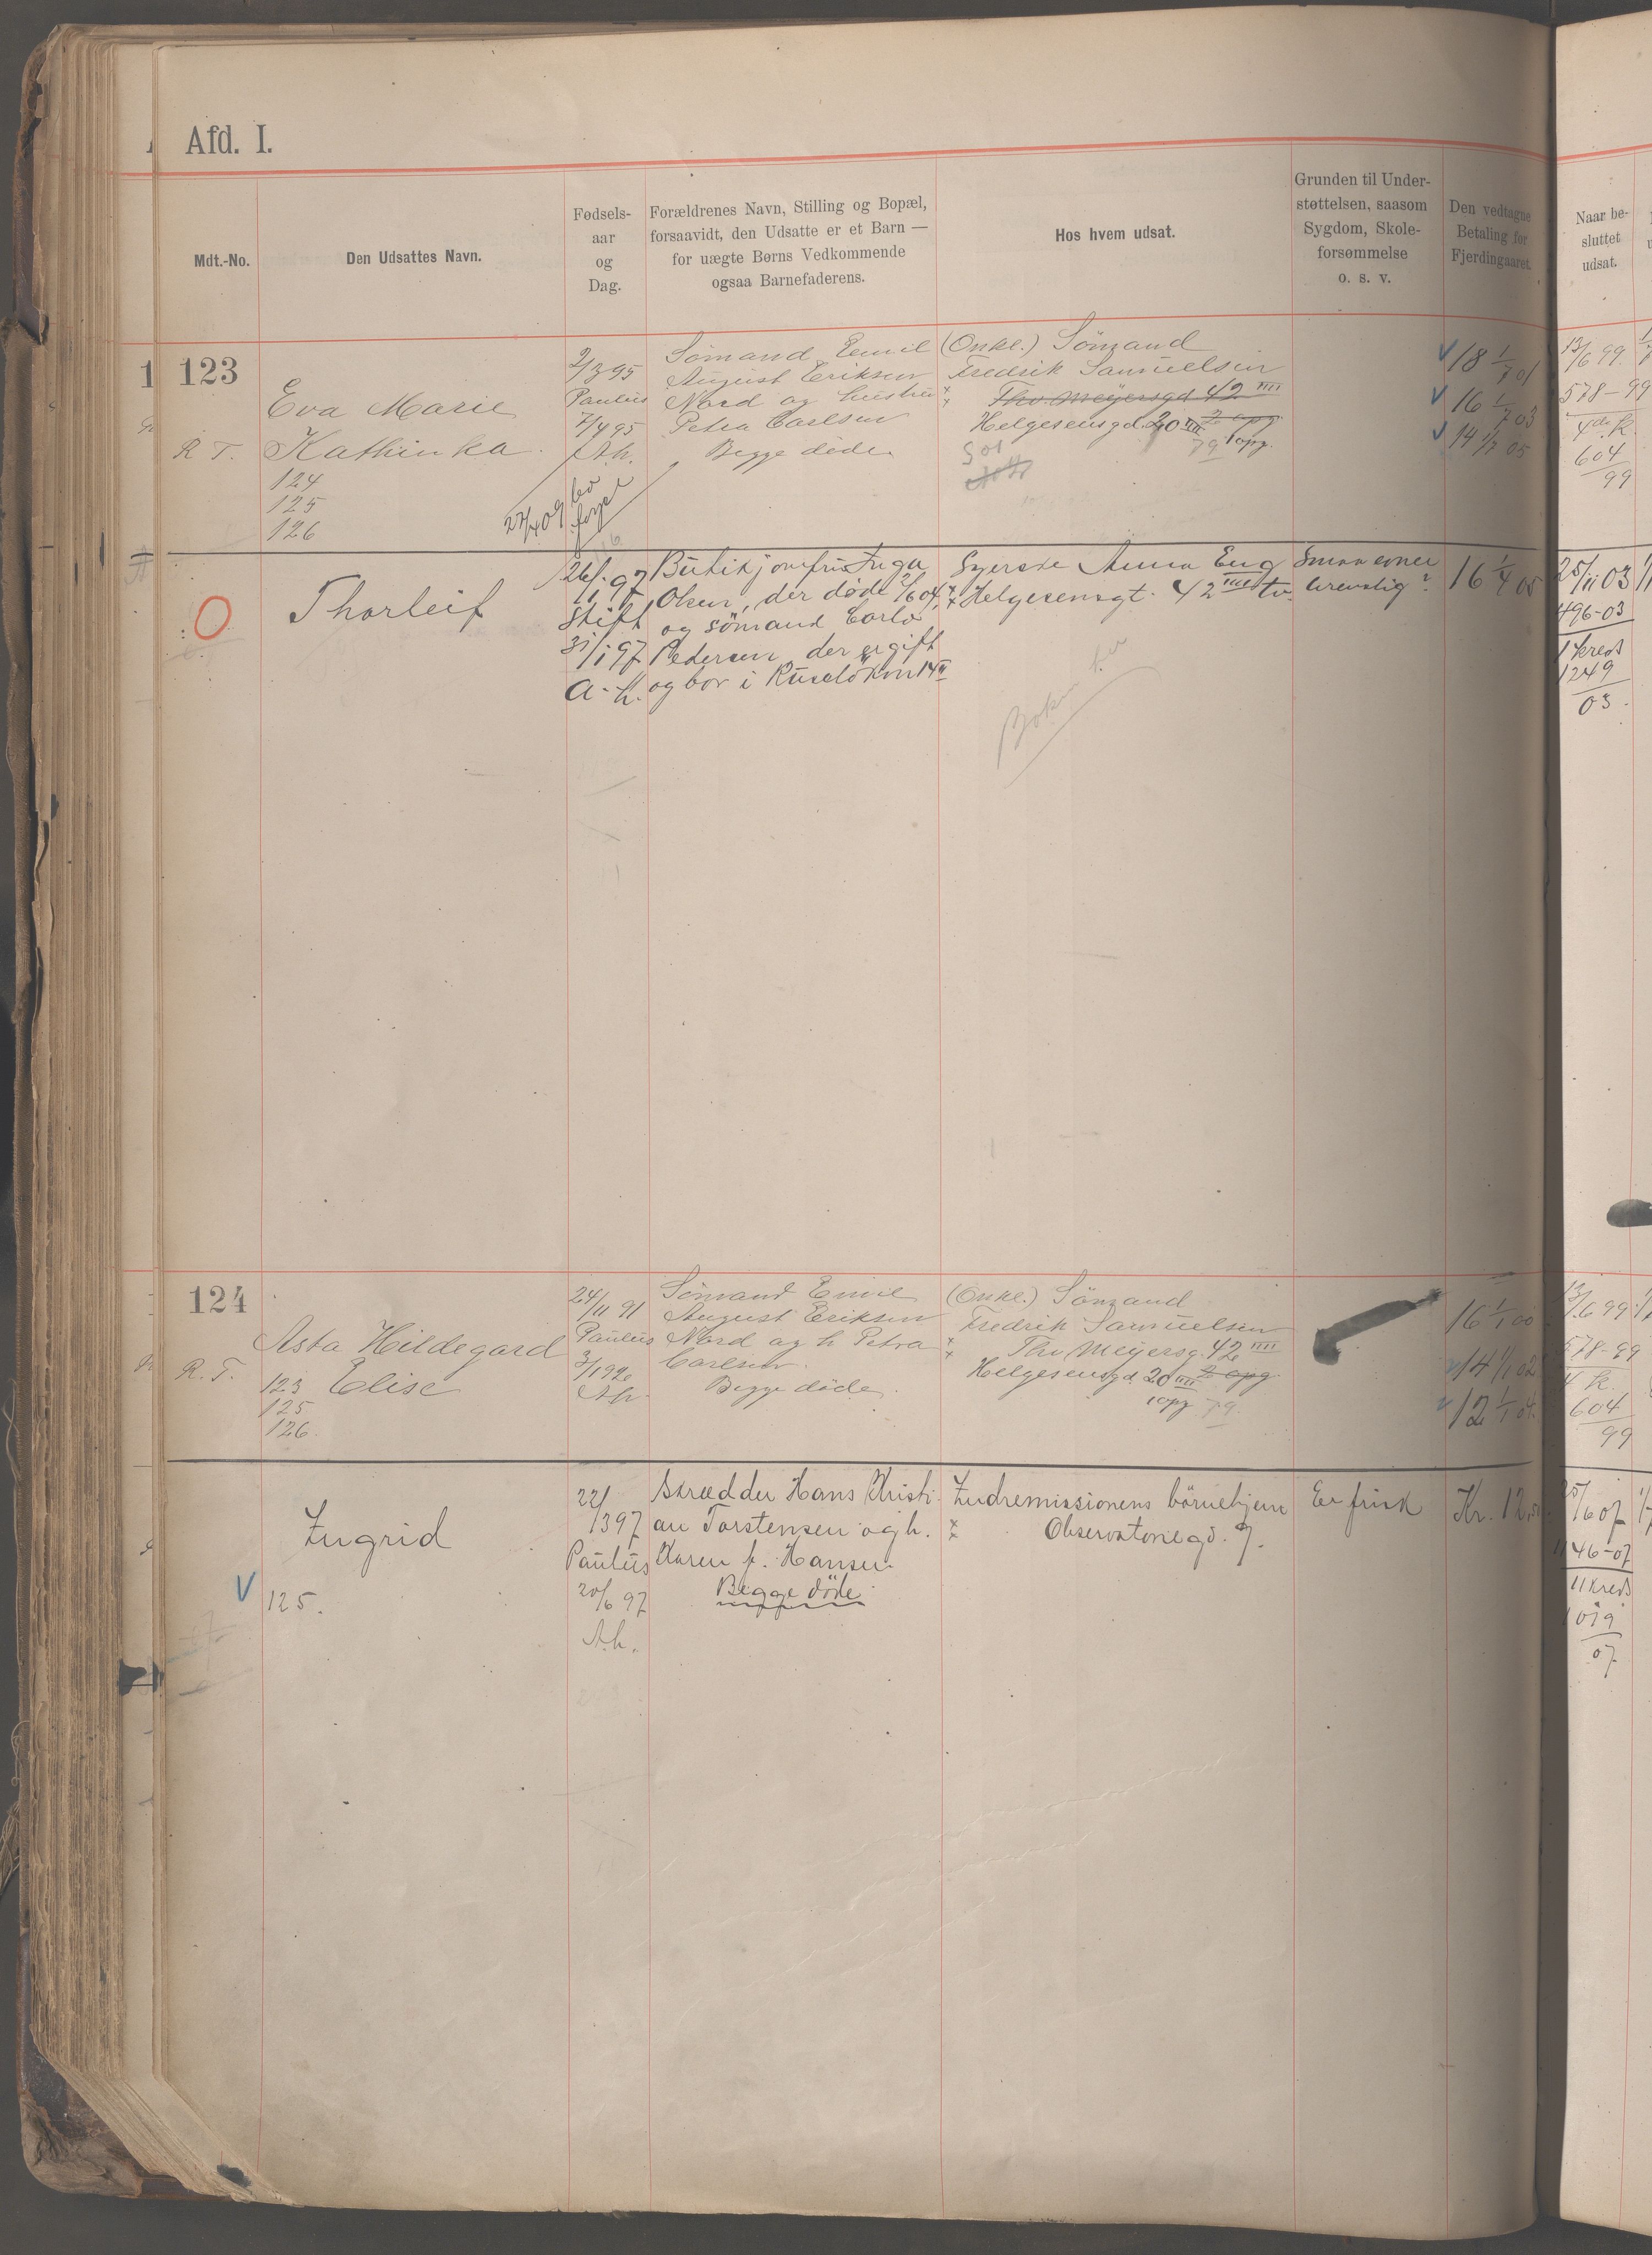 Afd. I.
Mdt.-No.
Den Udsattes Navn.
Fødsels-
aar
og
Dag.
Forældrenes Navn, Stilling og Bopæl,
forsaavidt, den Udsatte er et Barn —
for uægte Børns Vedkommende
ogsaa Barnefaderens.
Hos hvem udsat.
Grunden til Under-
støttelsen, saasom
Sygdom, Skole-
forsømmelse
o. s. v.
Den vedtagne
Betaling for
Fjerdingaaret.
Naar be-
sluttet
udsat.
123
R T.
Eva Marie
Kathinka.
124
125
126
2/3 95
Paulus
7/4 95
A.h.
27/4 09
Sömand Emil
August Eriksen
Nord og hustru
Petra Carlsen
Begge döde
(Onkl.) Sömand
Fredrik Samuelsen
Thv. Meyersgd. 42 IIII
Helgesensgd. 20 III 2 opg
79 1 opg.
18 1/7 01
16 1/7 03
14 1/7 05
13/6 99.
578-99
4de k.
604
99
O
Thorleif
26/1 97
Stift
31/1 97
A.h.
Butikjomfru Inga
Olsen, der døde 2/6 04,
og sömand Carlo
Pedersen der er gift
og bor i Ruselökvn 14 II
Syerske Anna Eng
Helgesensgt. 42 IIII tv.
16 1/4 05
25/11 03
496-03
1 kreds
1249
03.
124
R.T.
Asta Hildegard
Elise
123
125
126.
24/11 91
Paulus
3/1 92
A.h.
Sömand Emil
August Eriksen
Nord og h Petra
Carlsen.
Begge döde.
(Onkl.) Sömand
Fredrik Samuelsen
Thv Meyersg. 42 IIII
Helgesensgd. 20 IIII 2 opg
1 opg 79.
16 1/1 00
14 1/1 02
12 1/1 04.
13/6 99
578-99
4 k.
604
99
Ingrid
V 125.
22/
1397
Paulus
20/6 97
A.h.
Skrædder Hans Kristi-
an Torstensen og h.
Karen f. Hansen.
Begge döde.
Indremissionens börnehjem
Observatoriegd. 9.
Er frisk
Kr. 12,50
25/6 07
146-07
11 kreds
1019
07